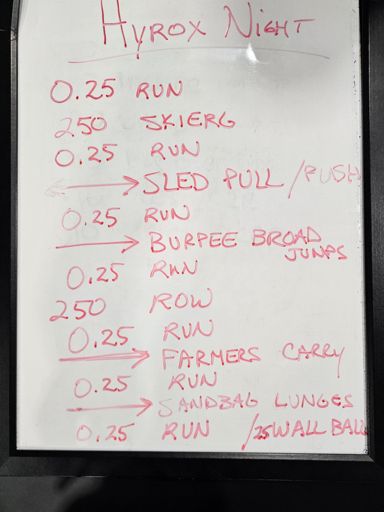 HYROX NIGHT
0.25 RUN
250 SKIERG
0.25 RUN
↔ SLED PULL / PUSH
0.25 RUN
→ BURPEE BROAD
JUMPS
0.25 RUN
250 ROW
0.25 RUN
→ FARMERS CARRY
0.25 RUN
→ SANDBAG LUNGES
0.25 RUN / 25 WALL BALLS